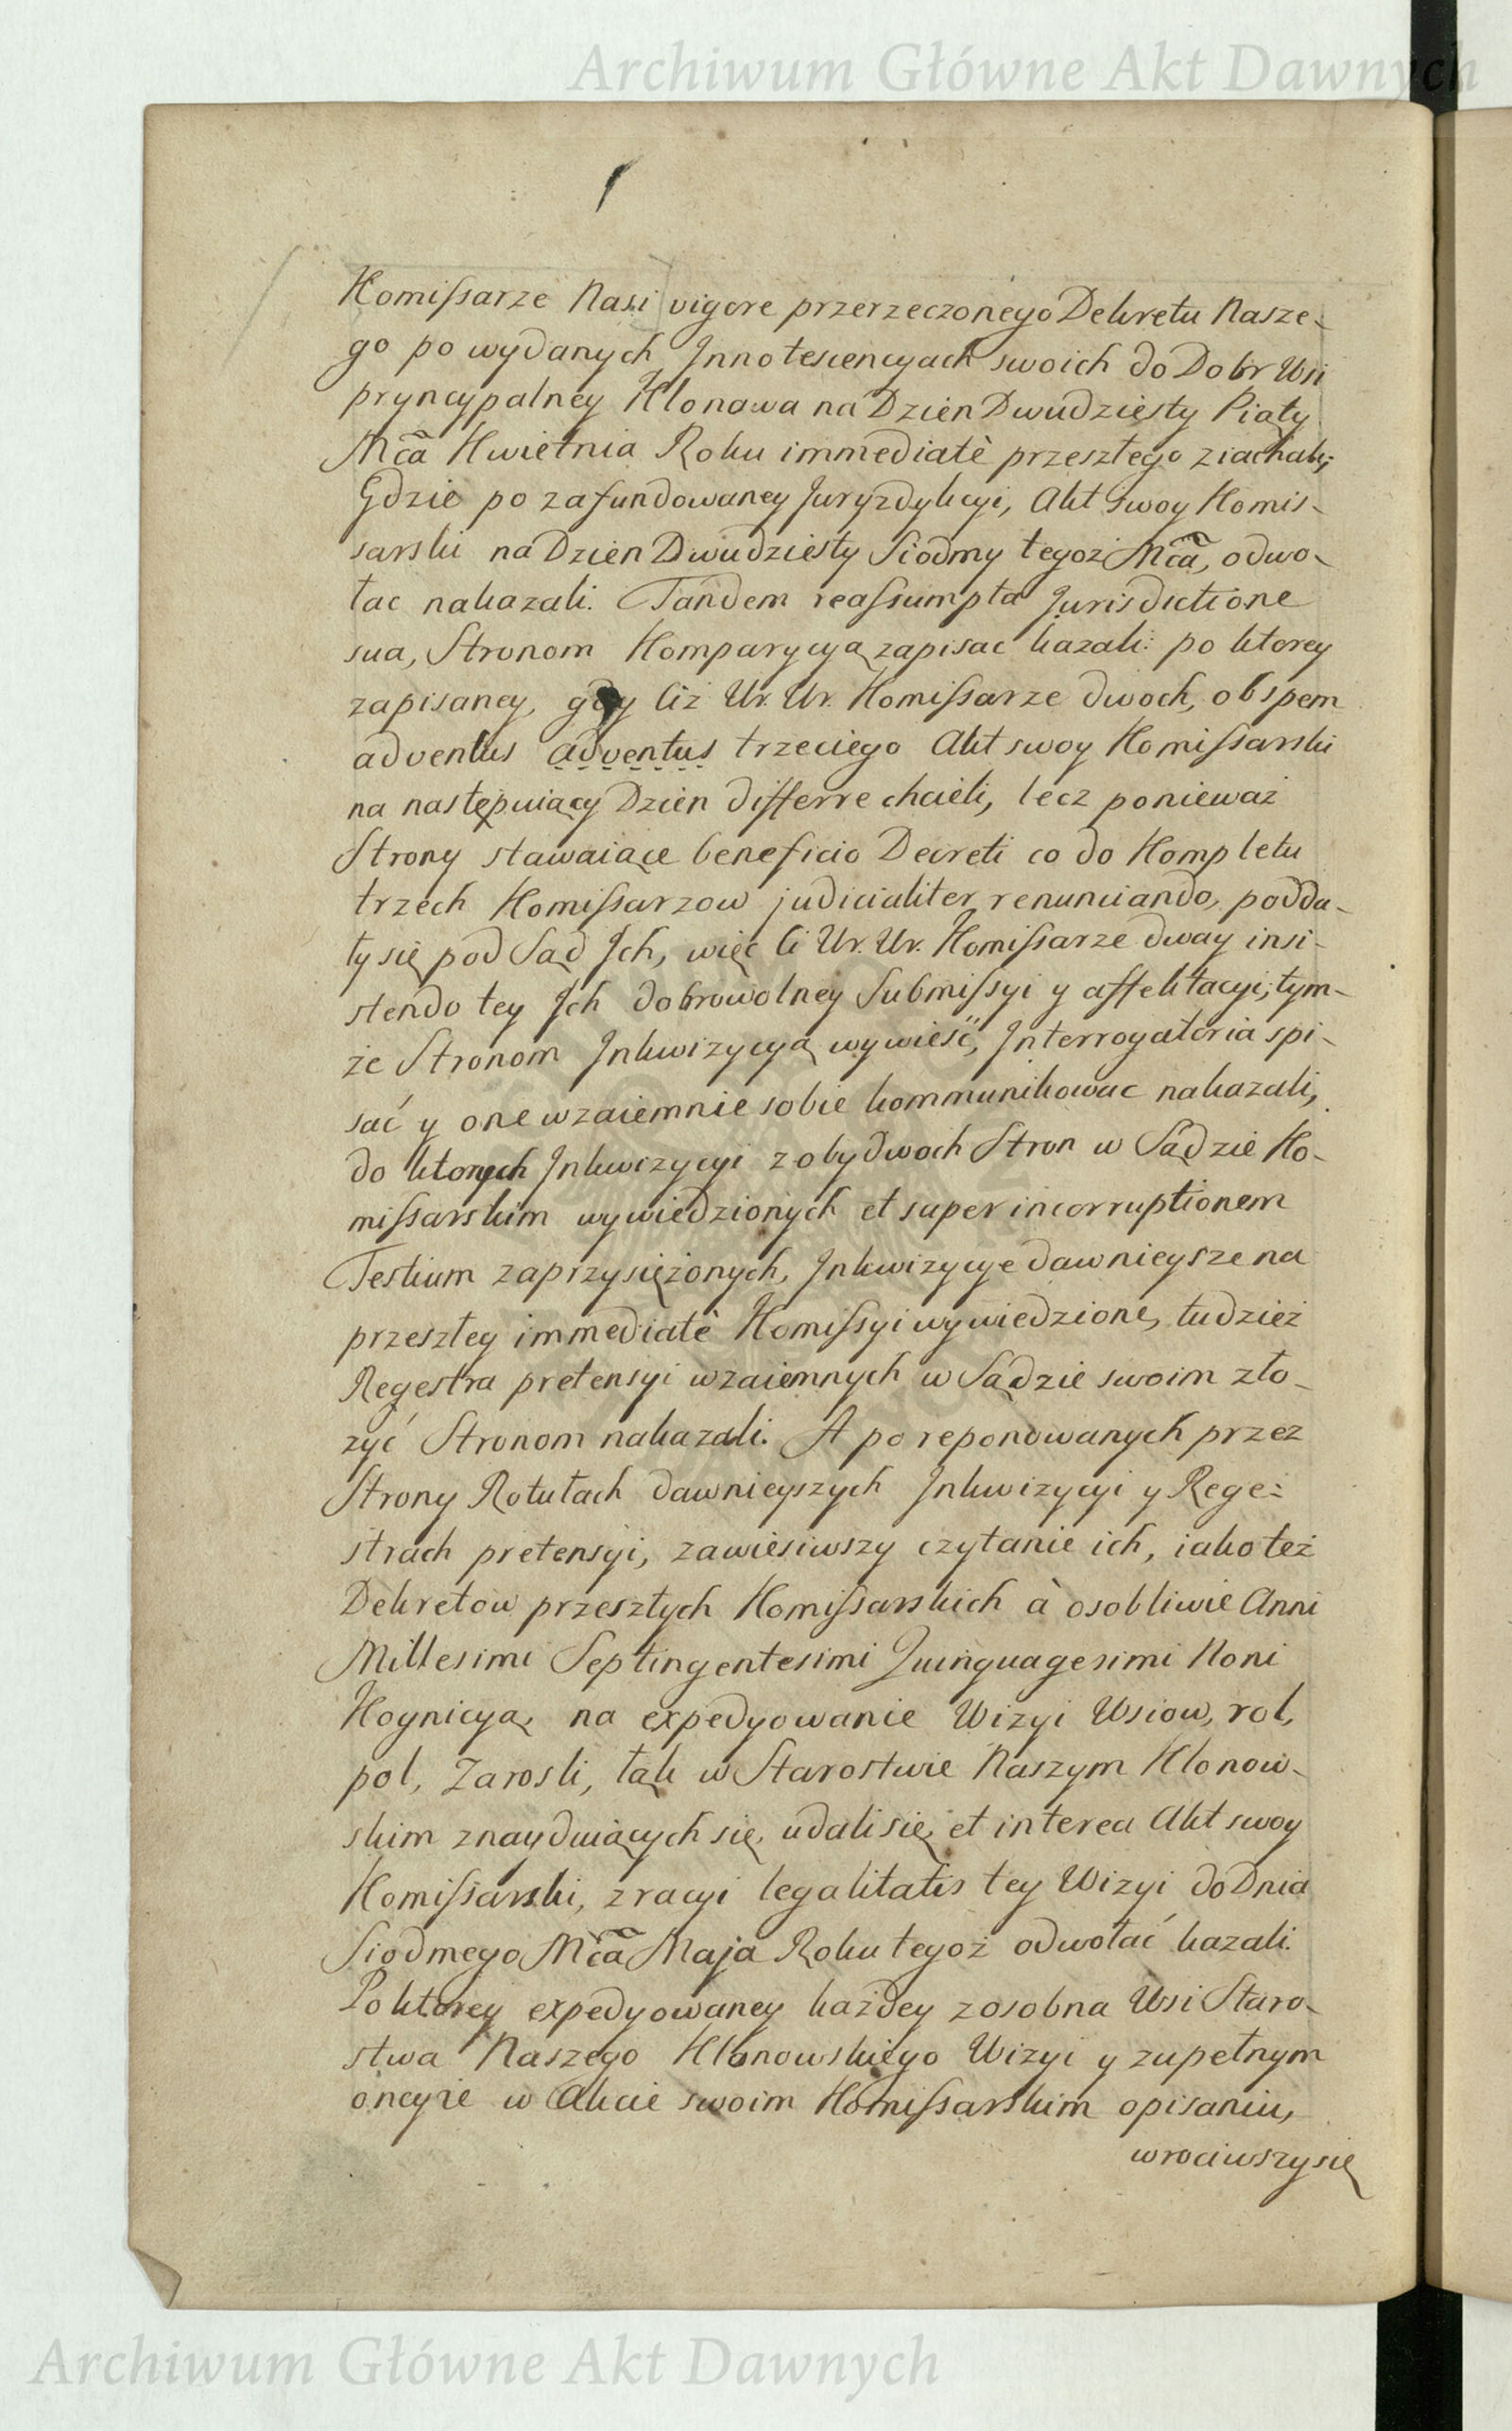 Archiwum Główne Akt Dawnych
Komissarze Nasi vigore przerzeczonego Dekretu Nasze-
go po wydanych Jnnotescencyach swoich do Dobr Wsi
pryncypalney Klonowa na Dzien Dwudziesty Piąty
Mca Kwietnia Roku immediatè przeszłego ziachali;
Gdzie po zafundowaney Juryzdykcyi, Akt swoy Komis-
sarski na Dzien Dwudziesty Siodmy tegoż Mca, odwo-
łac nakazali. Tandem reassumpta Jurisdictione
sua, Stronom Komparycyą zapisac kazali: po ktorey
zapisaney, gdy Ciż Ur. Ur. Komissarze dwoch, ob spem
adventus adventus trzeciego Akt swoy Komissarski
na następuiący Dzien differre chcieli, lecz ponieważ
Strony stawaiące beneficio Decreti co do Kompletu
trzech Komissarzow judicialiter renunciando, podda-
ły się pod Sąd Jch, więc Ci Ur. Ur. Komissarze dway insi-
stendo tey Jch dobrowolney Submissyi y affektacyi, tym-
że Stronom Jnkwizycyą wywieść, Jnterrogatoria spi-
sać y one wzaiemnie sobie kommunikowac nakazali,
do ktorych Jnkwizycyi z obydwoch Stron w Sądzie Ko-
missarskim wywiedzionych et super incorruptionem
Testium zaprzysiężonych, Jnkwizycye dawnieysze na
przeszłey immediatè Komissyi wywiedzione, tudzież
Regestra pretensyi wzaiemnych w Sądzie swoim zło-
żyć Stronom nakazali. A po reponowanych przez
Strony Rotułach dawnieyszych Jnkwizycyi y Rege-
strach pretensyi, zawiesiwszy czytanie ich, iako też
Dekretow przeszłych Komissarskich à osobliwie Anni
Millesimi Septingentesimi Quinquagesimi Noni
Kognicyą, na expedyowanie Wizyi Wsiow, rol,
pol, Zarosli, tak w Starostwie Naszym Klonow-
skim znayduiących się, udali się, et interea Akt swoy
Komissarski, z racyi legalitatis tey Wizyi do Dnia
Siodmego Mca Maja Roku tegoż odwołać kazali.
Po ktorey expedyowaney każdey z osobna Wsi Staro-
stwa Naszego Klonowskiego Wizyi y zupełnym
oneyże w Akcie swoim Komissarskim opisaniu,
wrociwszy się
Archiwum Główne Akt Dawnych